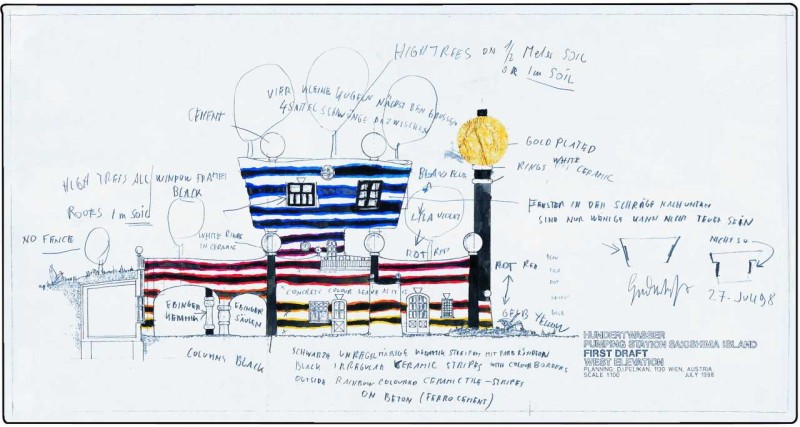 HIGH TREES ON 1/2 Meter SOIL
OR 1m SOIL
VIER KLEINE KUGELN NÄCHST DEN GROSSEN
4 SATTEL SCHWÜNGE DAZWISCHEN
CEMENT
GOLD PLATED
RINGS WHITE
CERAMIC
HIGH TREES ALL
ROOFS 1m Soil
WINDOW FRAMES
BLACK
BLAU BLUE
FENSTER IN DER SCHRÄGE NACH UNTEN
SIND NUR WENIGE KANN NICHT TEUER SEIN
LILA VIOLET
NO FENCE
WHITE RINGS
IN CERAMIC
ROT RED
NICHT SO
ROT RED
CONCRETE COLOUR LEAVE AS IT IS
EBINGER
KERAMIK
EBINGER
SÄULEN
GELB Yellow
27. Juli 98
COLUMNS BLACK
SCHWARZE UNREGELMÄSSIGE KERAMIK STREIFEN MIT FARBRÄNDERN
BLACK IRREGULAR CERAMIC STRIPES with COLOUR BORDERS
OUTSIDE RAINBOW COLOURED CERAMIC TILE-STRIPES
ON BETON (FERRO CEMENT)
HUNDERTWASSER
PUMPING STATION SAKISHIMA ISLAND
FIRST DRAFT
WEST ELEVATION
PLANNING: DI.PELIKAN, 1130 WIEN, AUSTRIA
SCALE 1:100 JULY 1998